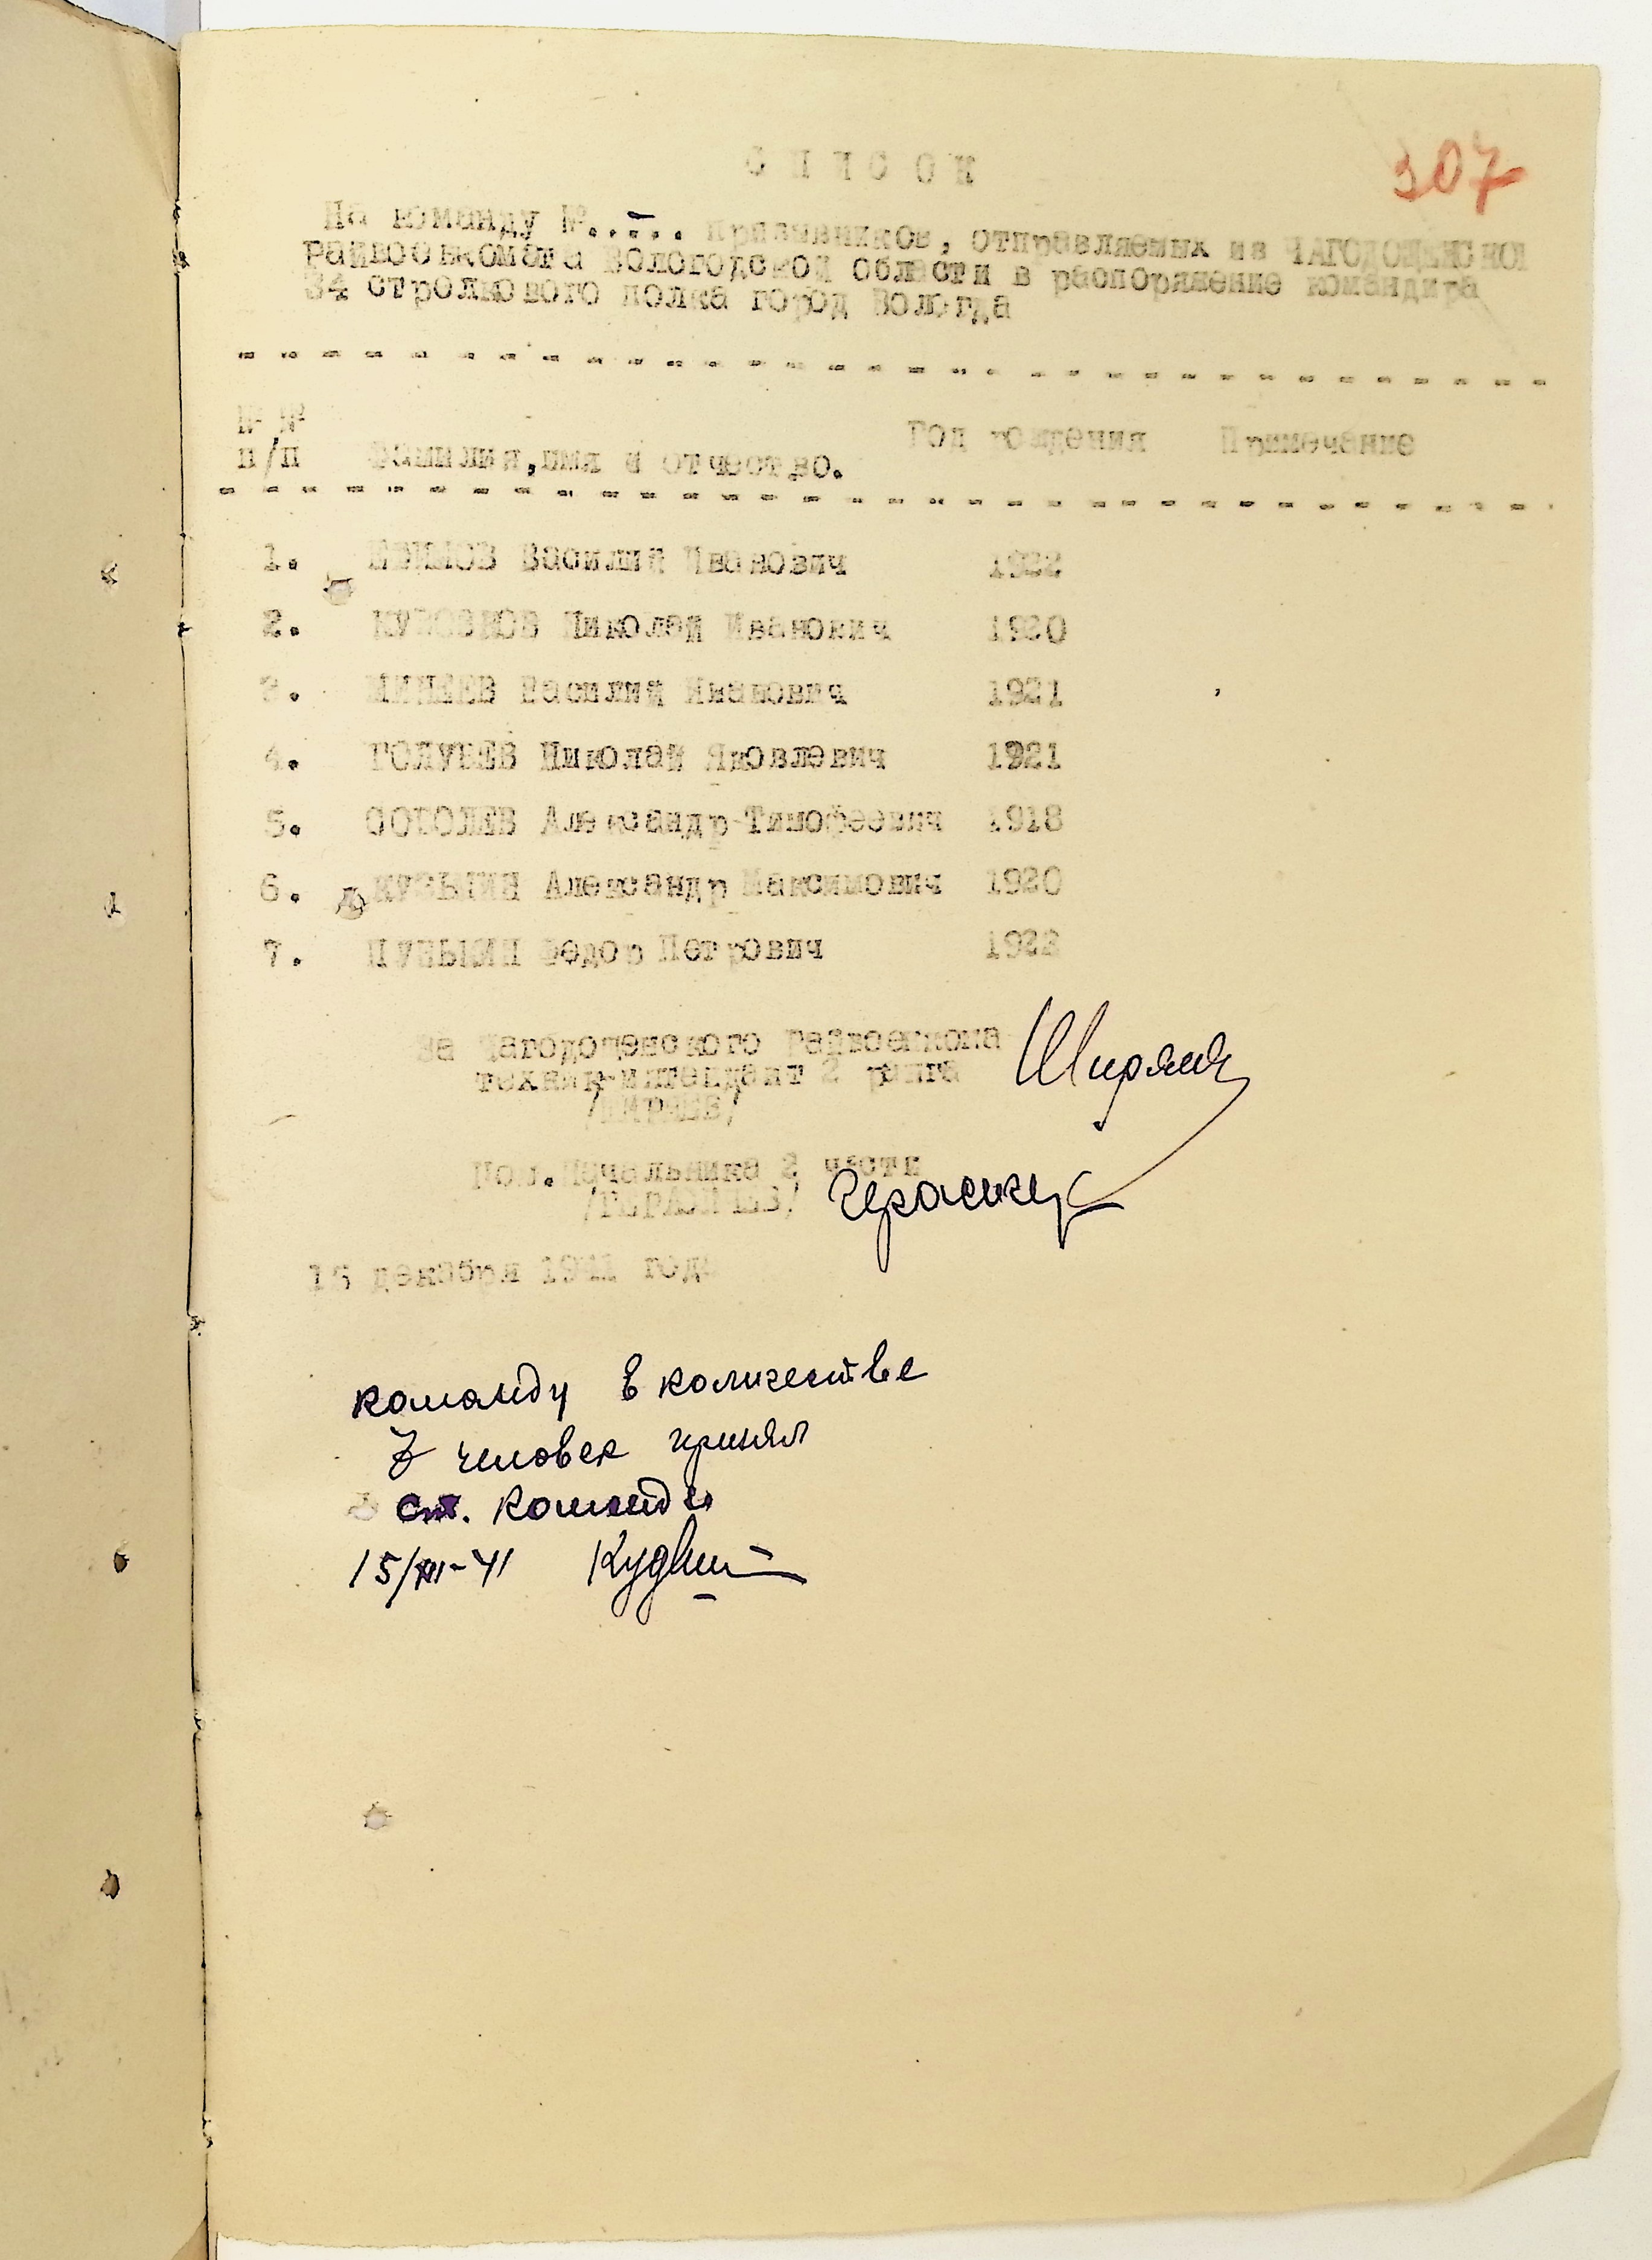 СПИСОК
307
На команду №..-.. призывников, отправляемых из ЧАГОДОЩЕНСКОГ
Райвоенкомата Вологодской области в распоряжение командира
34 стролкового полка город Вологда
№ №
п/п Фамилия,имя и отчество. Год рождения Примечание
1. Василий Иванович 1922
2. Николай Иванович 1920
3. МИНАЕВ Василий Иванович 1921
4. ГОЛУБЕВ Николай Яковлевич 1921
5. СОБОЛЕВ Александр Тимофеевич 1918
6. КУЗЬМИН Александр Максимович 1920
7. Федор Петрович 1922
За Чагодощенского Райвоенкома
техник-интендант 2 ранга
/ШИРЯЕВ/
Пом.Начальника 2 части
/ГЕРАСИЧЕВ/
15 декабря 1941 года
команду в количестве
7 человек принял
ст. команды
15/XII-41